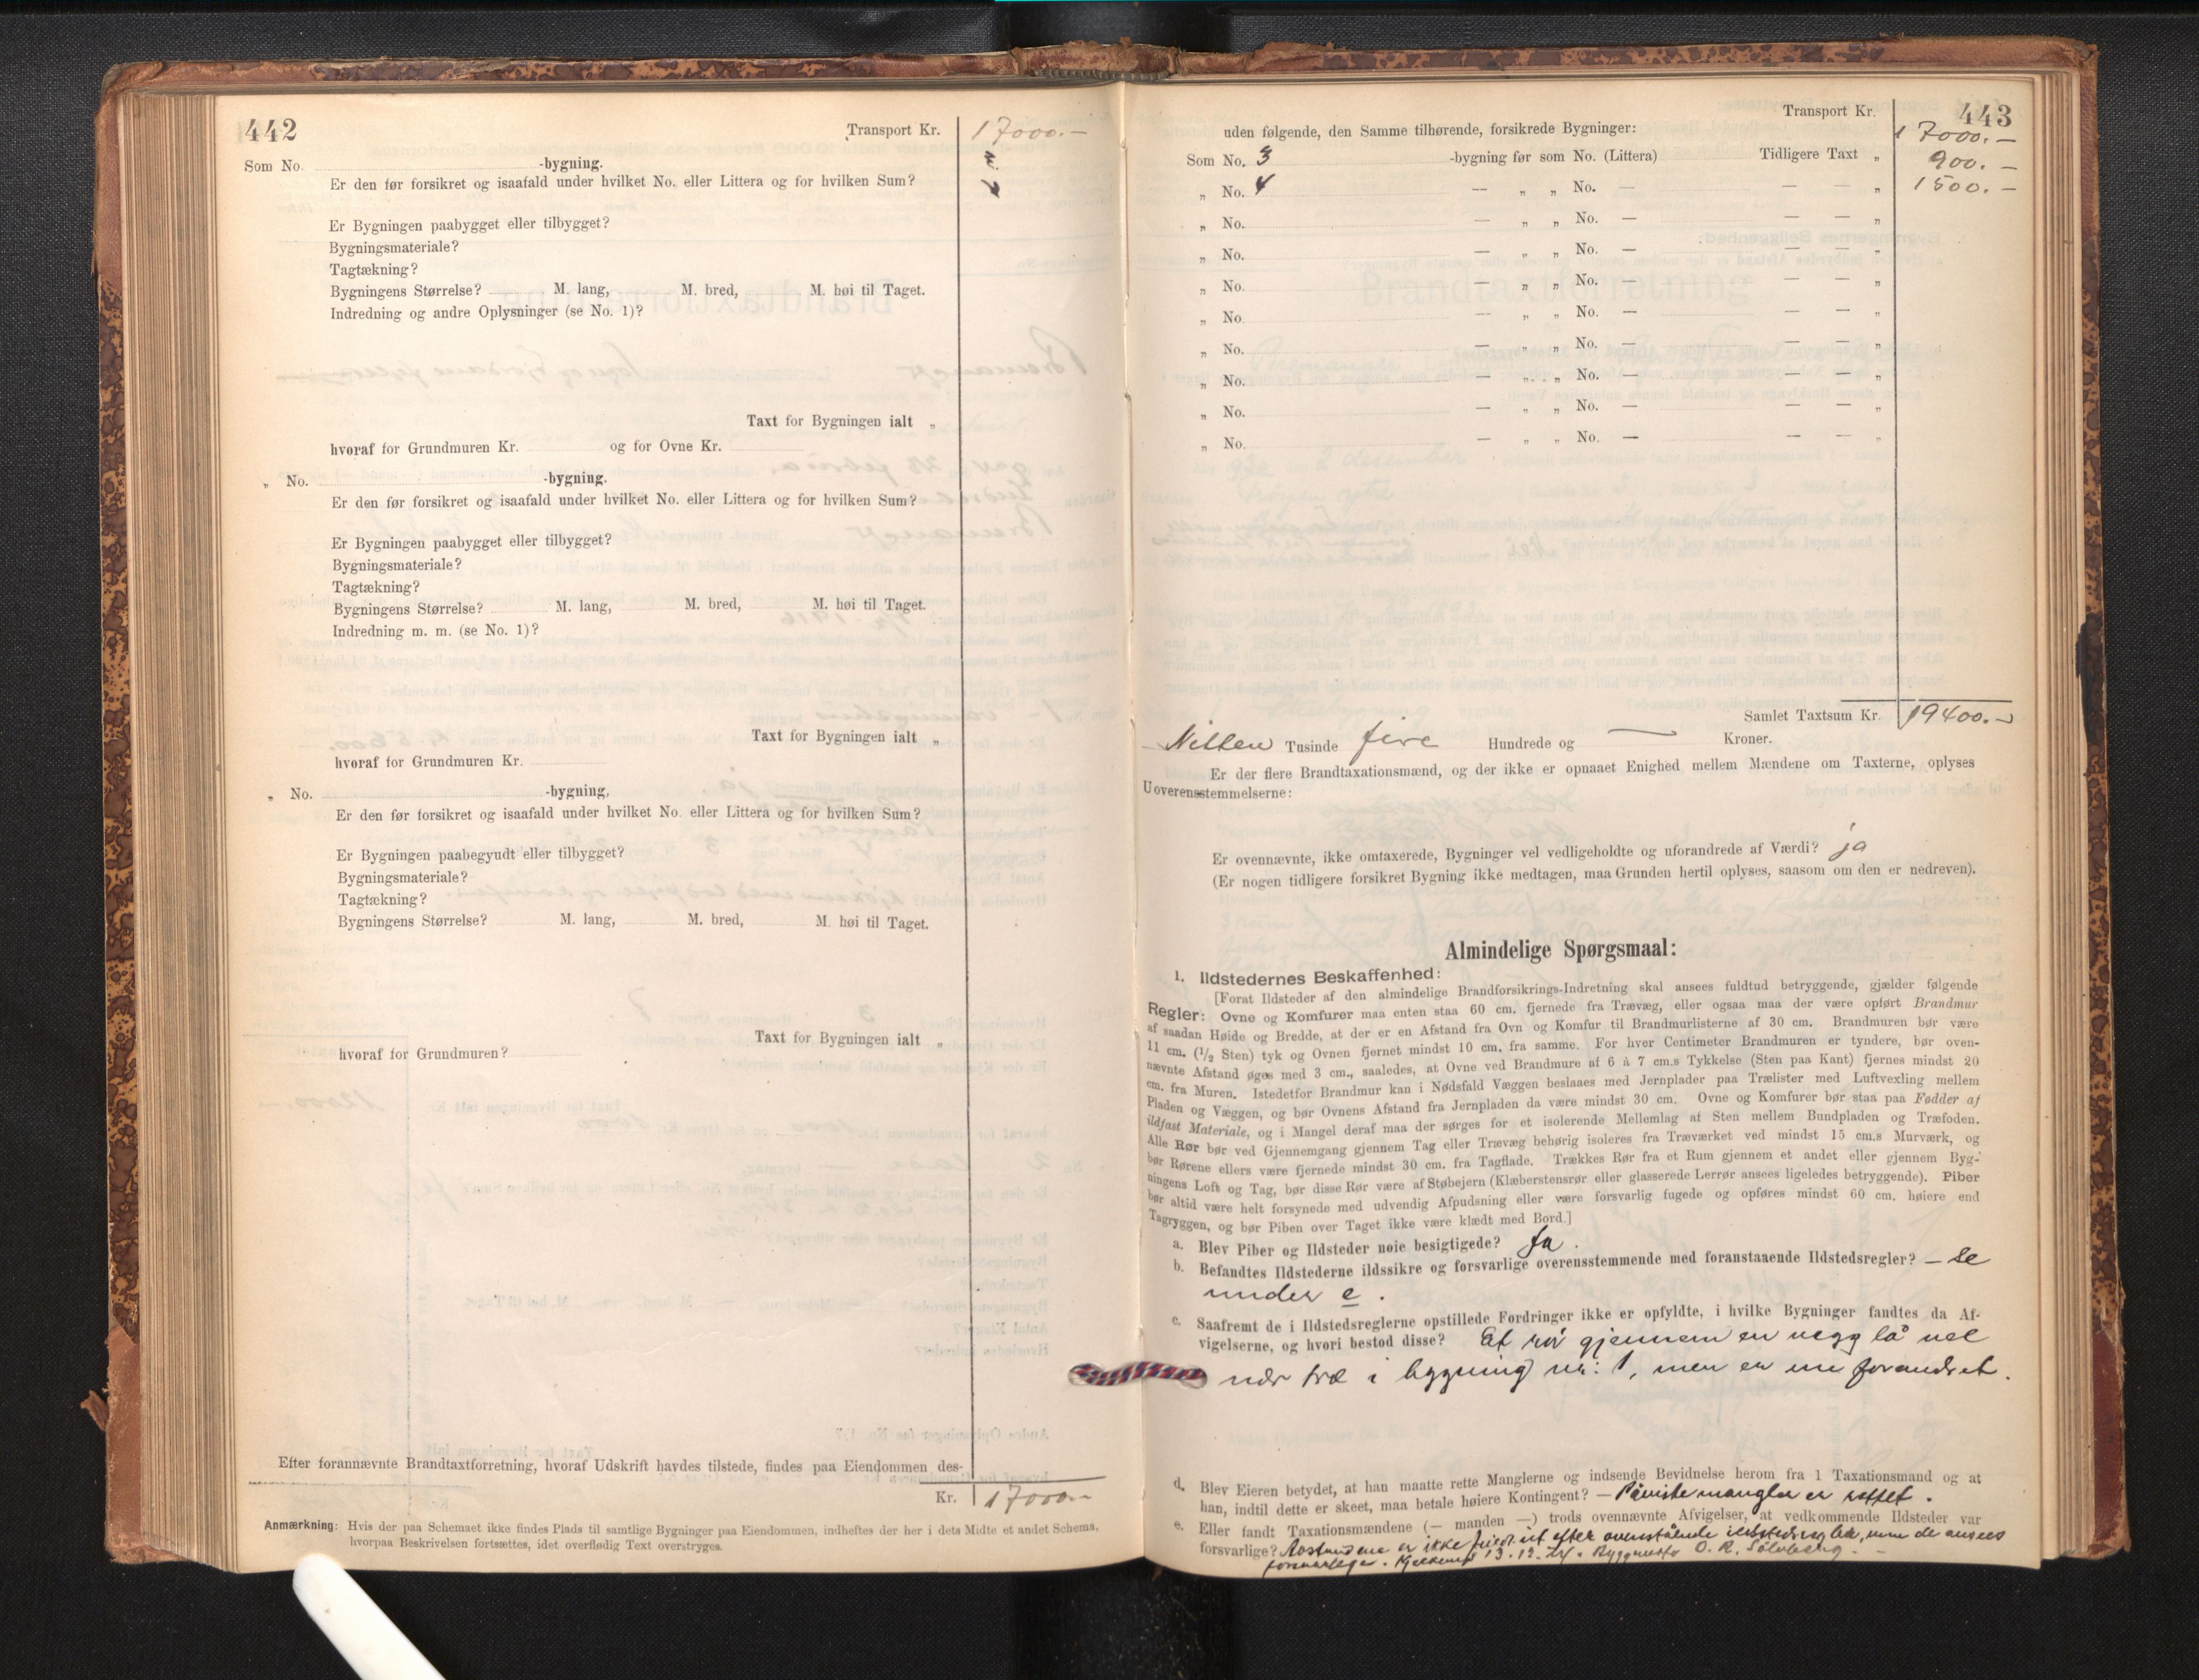 442
Transport Kr. 17000.-
Som No. -bygning.
Er den før forsikret og isaafald under hvilket No. eller Littera og for hvilken Sum?
Er Bygningen paabygget eller tilbygget?
Bygningsmateriale?
Tagtækning?
Bygningens Størrelse? M. lang, M. bred, M. høi til Taget.
Indredning og andre Oplysninger (se No. 1)?
Taxt for Bygningen ialt „
hvoraf for Grundmuren Kr. og for Ovne Kr.
„ No. -bygning.
Er den før forsikret og isaafald under hvilket No. eller Littera og for hvilken Sum?
Er Bygningen paabygget eller tilbygget?
Bygningsmateriale?
Tagtækning?
Bygningens Størrelse? M. lang, M. bred, M. høi til Taget.
Indredning m. m. (se No. 1)?
Taxt for Bygningen ialt „
hvoraf for Grundmuren Kr.
„ No. -bygning,
Er den før forsikret og isaafald under hvilket No. eller Littera og for hvilken Sum?
Er Bygningen paabegyudt eller tilbygget?
Bygningsmateriale?
Tagtækning?
Bygningens Størrelse? M. lang, M. bred, M. høi til Taget.
Taxt for Bygningen ialt „
hvoraf for Grundmuren?
Efter forannævnte Brandtaxtforretning, hvoraf Udskrift havdes tilstede, findes paa Eiendommen des-
Kr. 17000.-
Anmærkning: Hvis der paa Schemaet ikke findes Plads til samtlige Bygninger paa Eiendommen, indheftes der her i dets Midte et andet Schema,
hvorpaa Beskrivelsen fortsættes, idet overflødig Text overstryges.
443
Transport Kr. 17000.-
uden følgende, den Samme tilhørende, forsikrede Bygninger:
Som No. 3 -bygning før som No. (Littera) Tidligere Taxt „ 900.-
„ No. 4 — „ „ No. — — — „ 1500.-
„ No. — „ „ No. — — — „
„ No. — „ „ No. — — — „
„ No. — „ „ No. — — — „
„ No. — „ „ No. — — — „
„ No. — „ „ No. — — — „
„ No. — „ „ No. — — — „
„ No. — „ „ No. — — — „
„ No. — „ „ No. — — — „
Samlet Taxtsum Kr. 19400.-
— Nitten Tusinde fire Hundrede og — Kroner.
Er der flere Brandtaxationsmænd, og der ikke er opnaaet Enighed mellem Mændene om Taxterne, oplyses
Uoverensstemmelserne:
Er ovennævnte, ikke omtaxerede, Bygninger vel vedligeholdte og uforandrede af Værdi? ja
(Er nogen tidligere forsikret Bygning ikke medtagen, maa Grunden hertil oplyses, saasom om den er nedreven).
Almindelige Spørgsmaal:
1. Ildstedernes Beskaffenhed:
[Forat Ildsteder af den almindelige Brandforsikrings-Indretning skal ansees fuldtud betryggende, gjælder følgende
Regler: Ovne og Komfurer maa enten staa 60 cm. fjernede fra Trævæg, eller ogsaa maa der være opført Brandmur
af saadan Høide og Bredde, at der er en Afstand fra Ovn og Komfur til Brandmurlisterne af 30 cm. Brandmuren bør være
11 cm. (1/2 Sten) tyk og Ovnen fjernet mindst 10 cm. fra samme. For hver Centimeter Brandmuren er tyndere, bør oven-
nævnte Afstand øges med 3 cm., saaledes, at Ovne ved Brandmure af 6 à 7 cm.s Tykkelse (Sten paa Kant) fjernes mindst 20
cm. fra Muren. Istedetfor Brandmur kan i Nødsfald Væggen beslaaes med Jernplader paa Trælister med Luftvexling mellem
Pladen og Væggen, og bør Ovnens Afstand fra Jernpladen da være mindst 30 cm. Ovne og Komfurer bør staa paa Fødder af
ildfast Materiale, og i Mangel deraf maa der sørges for et isolerende Mellemlag af Sten mellem Bundpladen og Træfoden.
Alle Rør bør ved Gjennemgang gjennem Tag eller Trævæg behørig isoleres fra Træværket ved mindst 15 cm.s Murværk, og
bør Rørene ellers være fjernede mindst 30 cm. fra Tagflade. Trækkes Rør fra et Rum gjennem et andet eller gjennem Byg-
ningens Loft og Tag, bør disse Rør være af Støbejern (Klæberstensrør eller glasserede Lerrør ansees ligeledes betryggende). Piber
bør altid være helt forsynede med udvendig Afpudsning eller være forsvarlig fugede og opføres mindst 60 cm. høiere end
Tagryggen, og bør Piben over Taget ikke være klædt med Bord.]
a. Blev Piber og Ildsteder nøie besigtigede? Ja.
b. Befandtes Ildstederne ildssikre og forsvarlige overensstemmende med foranstaaende Ildstedsregler? — se
under e.
c. Saafremt de i Ildstedsreglerne opstillede Fordringer ikke er opfyldte, i hvilke Bygninger fandtes da Af-
vigelserne, og hvori bestod disse? Et rör gjennem en vegg lå vel
nær træ i bygning nr: 1, men er nu forandret.
d. Blev Eieren betydet, at han maatte rette Manglerne og indsende Bevidnelse herom fra 1 Taxationsmand og at
han, indtil dette er skeet, maa betale høiere Kontingent? — Påviste mangler er rettet.
e. Eller fandt Taxationsmændene (— manden —) trods ovennævnte Afvigelser, at vedkommende Ildsteder var
forsvarlige? Avstandene er ikke efter ovenstående ildstedsregler, men de ansees
forsvarlige. 13.12.24. Byggmester O. R. Sölvberg.